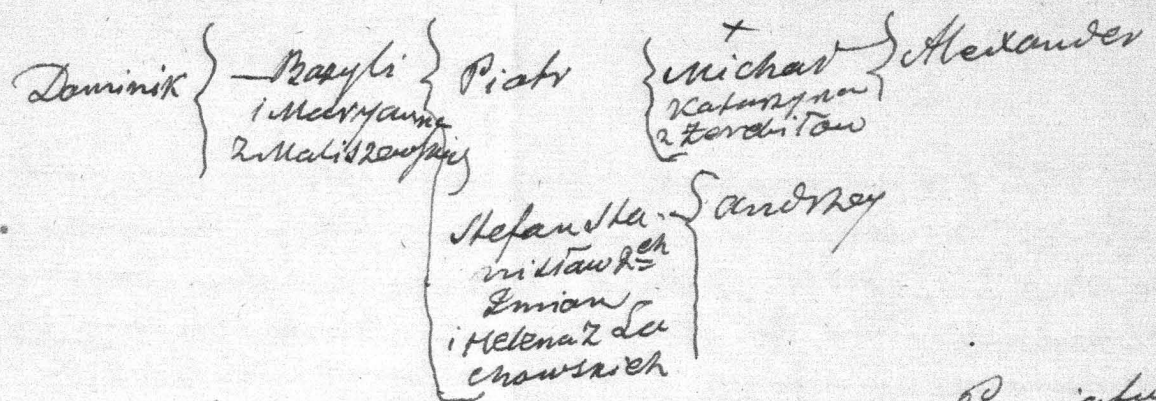 Dominik
Bazyli
i Maryanna
z Maliszewskich
Piotr
Michał
Katarzyna
z
Alexander
Stefan Sta-
nisław 2ch
Imion
i Helena z La
chowskich
Andrzey